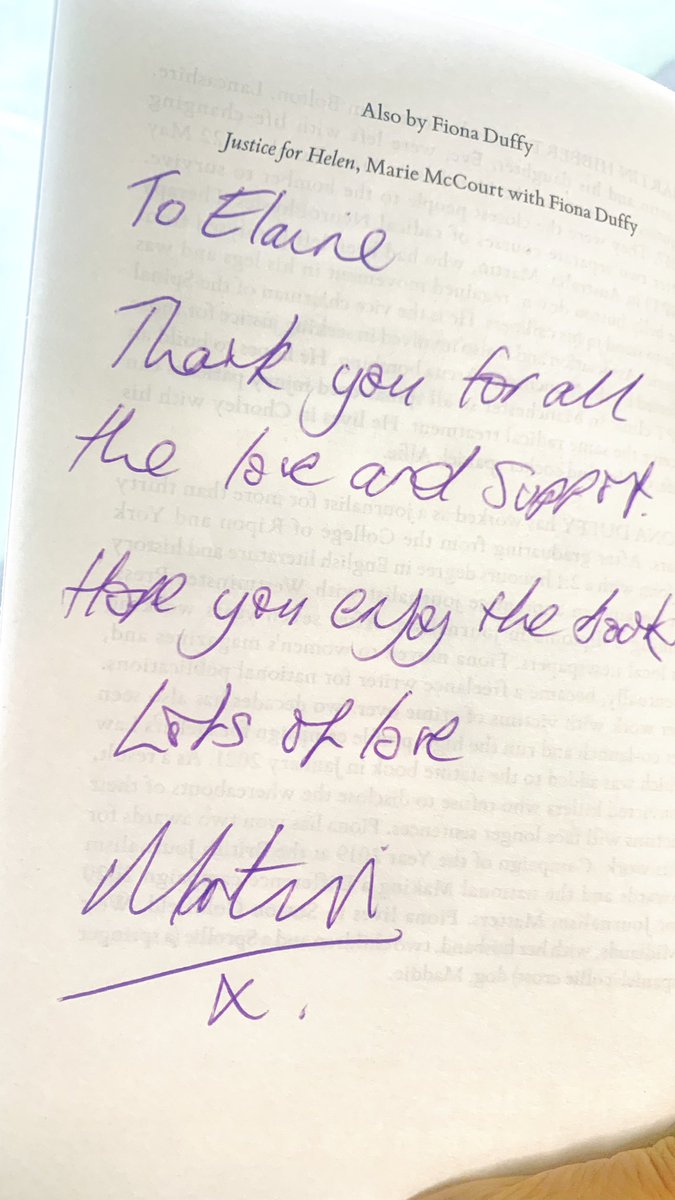 Also by Fiona Duffy
Justice for Helen, Marie McCourt with Fiona Duffy
To Elaine
Thank you for all
the love and support.
Hope you enjoy the book
Lots of love
Martin
x.